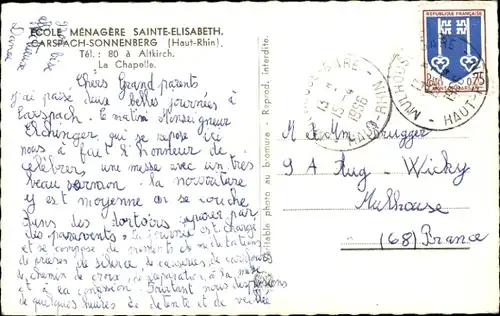 ÉCOLE MÉNAGÈRE SAINTE-ELISABETH,
CARSPACH-SONNENBERG (Haut-Rhin).
Tél. : 80 à Altkirch.
La Chapelle.
Chers Grand parents
J'ai passé deux belles journées à
Carspach. Ce matin Monseigneur
Elchinger qui se repose ici
nous a fait l'honneur de
célébrer une messe avec un très
beau sermon. La nourriture
y est moyenne on se couche
dans des dortoirs séparés par
des paravents. La journée est chargée
et se compose de moments de méditations
de prières de silence, de causeries de carrefours
de chemin de croix, de préparation à la messe
et à la confession. Pourtant nous disposons
de quelques heures de détente et de veillée
Véritable photo au bromure - Reprod. interdite.
MULHOUSE-GARE
1966
HAUT-RHIN
0,75
M Brugger
9 A Rug - Wicky
Mulhouse
(68) France